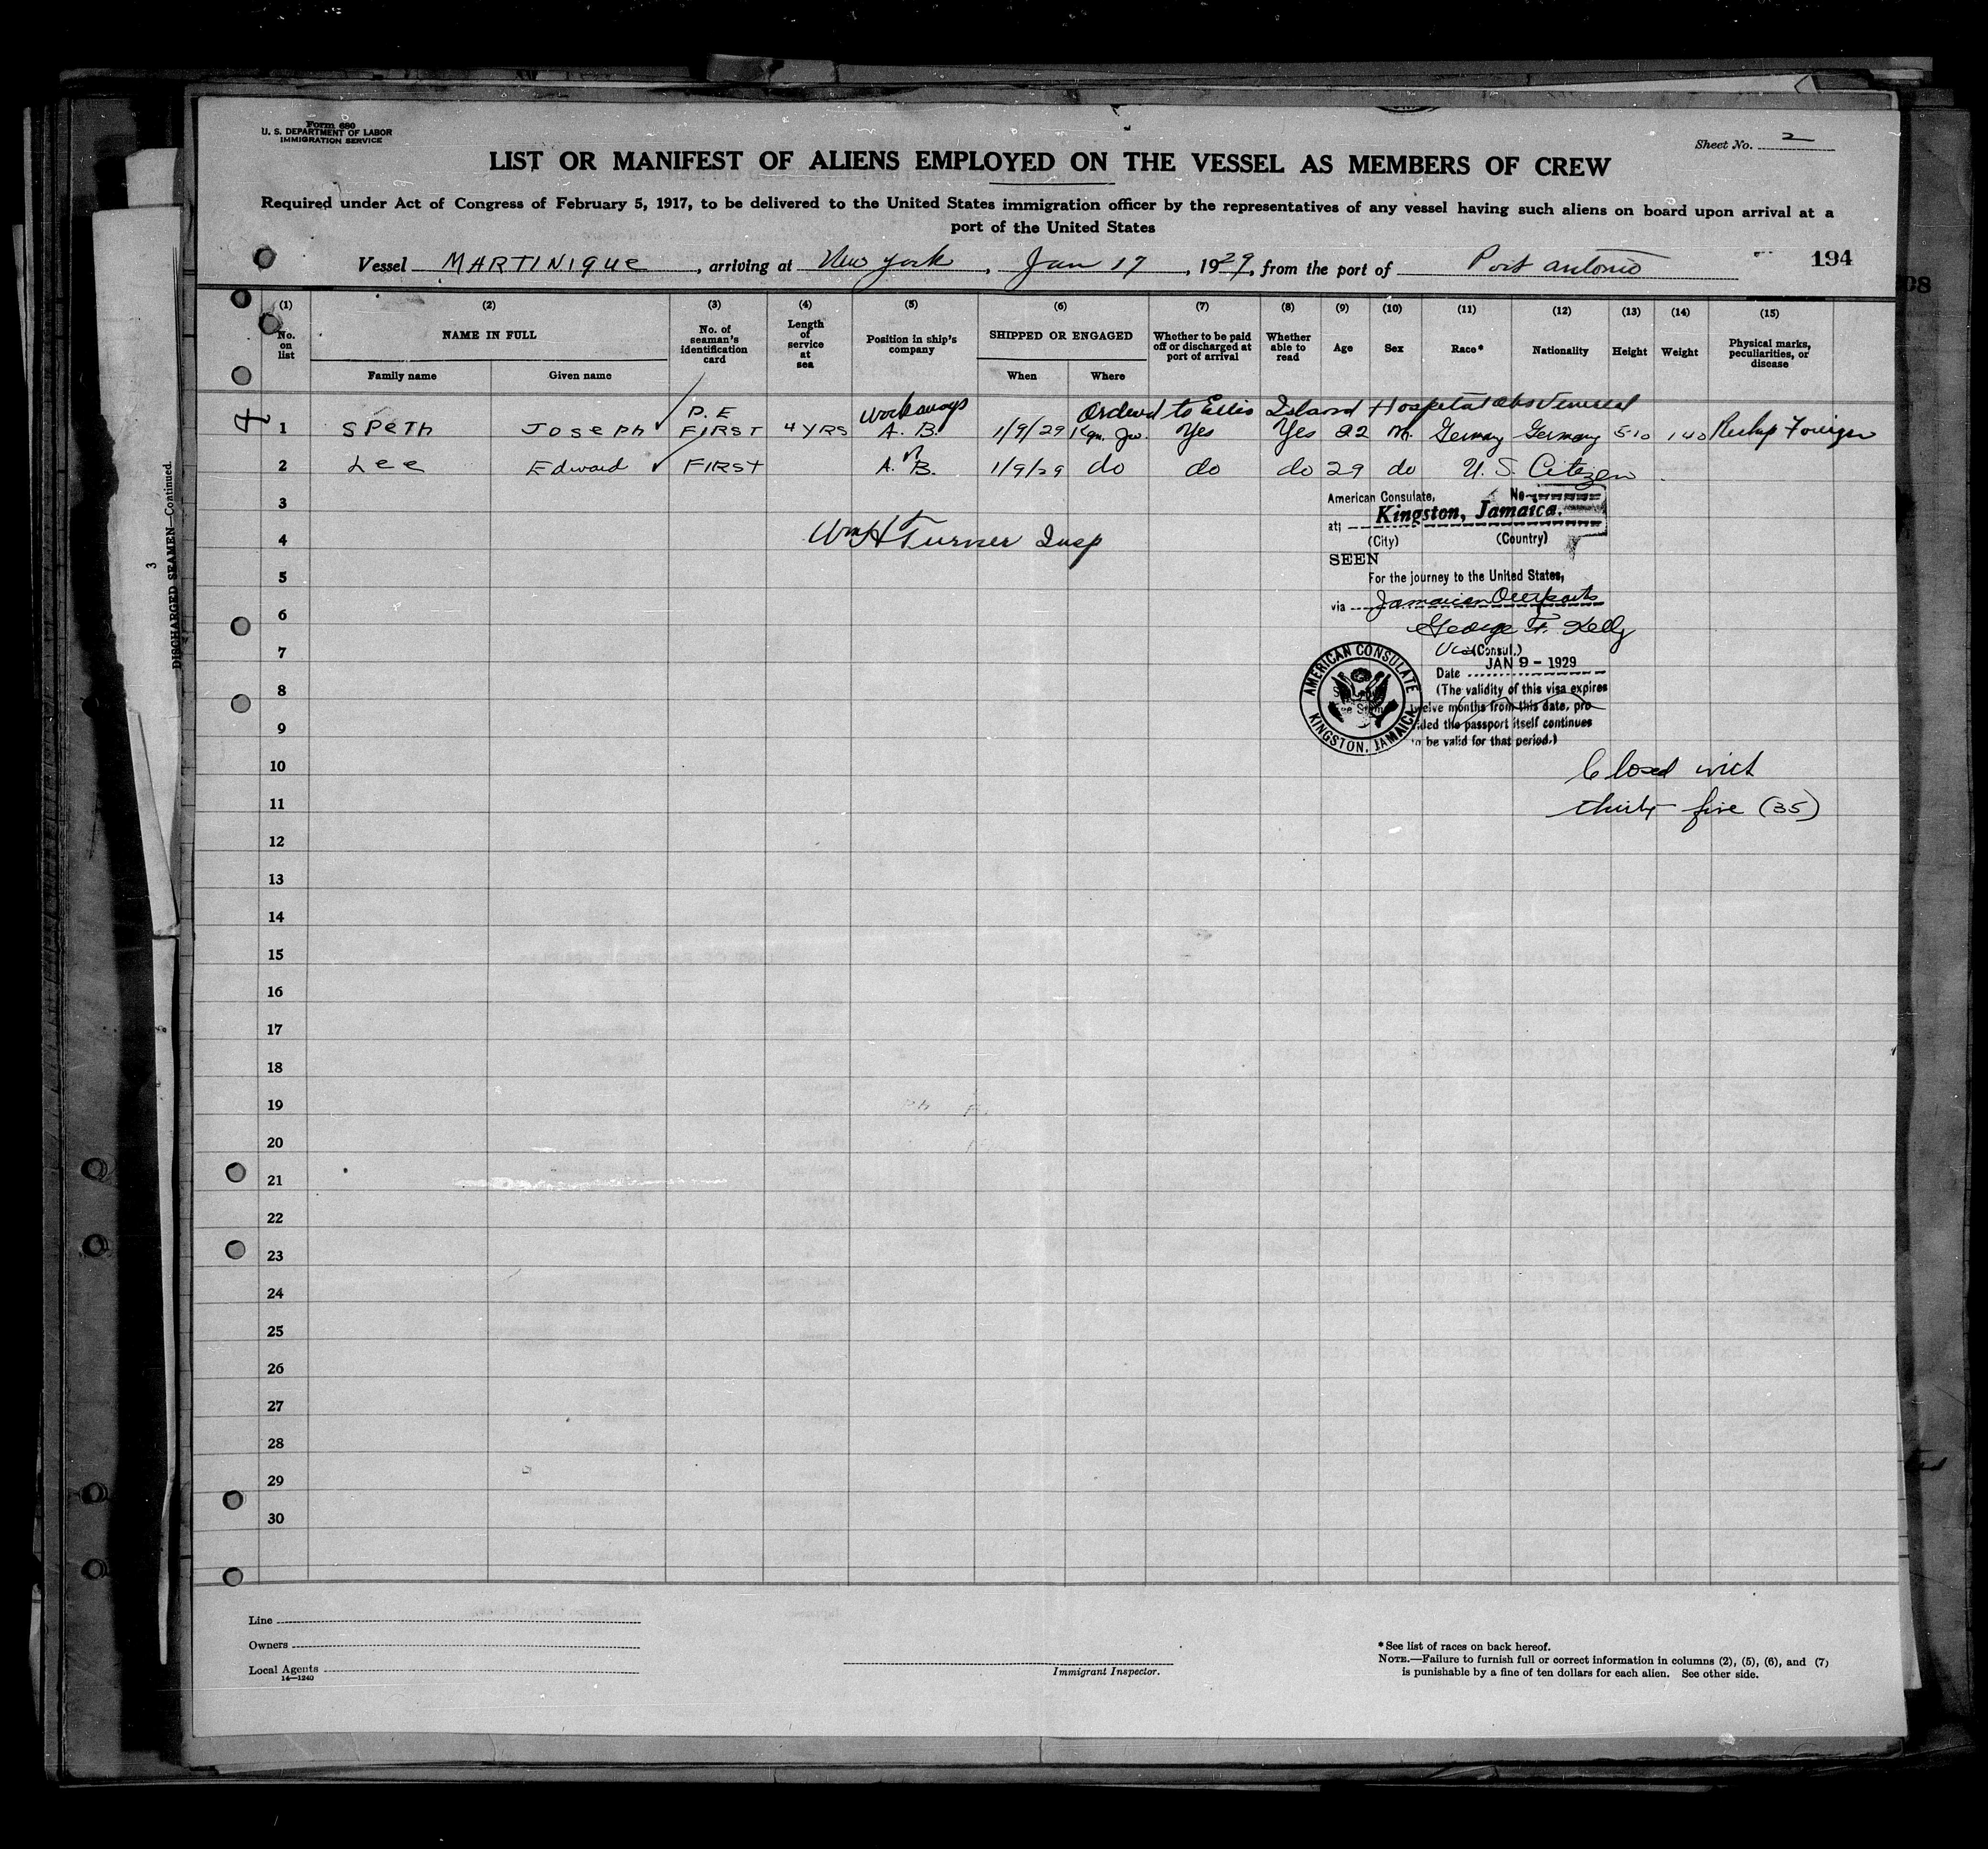 Form 680
U. S. DEPARTMENT OF LABOR
IMMIGRATION SERVICE
Sheet No. 2
LIST OR MANIFEST OF ALIENS EMPLOYED ON THE VESSEL AS MEMBERS OF CREW
Required under Act of Congress of February 5, 1917, to be delivered to the United States immigration officer by the representatives of any vessel having such aliens on board upon arrival at a
port of the United States
Vessel MARTINIQUE, arriving at New York, Jan 17, 1929, from the port of Port Antonio
194
(1) (2) (3) (4) (5) (6) (7) (8) (9) (10) (11) (12) (13) (14) (15)
No. on list
NAME IN FULL
Family name
Given name
No. of seaman's identification card
Length of service at sea
Position in ship's company
SHIPPED OR ENGAGED
When
Where
Whether to be paid off or discharged at port of arrival
Whether able to read
Age
Sex
Race*
Nationality
Height
Weight
Physical marks, peculiarities, or disease
P. E workaways Ordered to Ellis Island Hospital Venereal
1 SPETH JOSEPH FIRST 4 YRS A. B. 1/9/29 Kgn. Ja. Yes Yes 22 M. Germany Germany 5-10 140 Reship Foreign
2 Lee Edward FIRST A. B. 1/9/29 do do do 29 do U. S. Citizen
3
4 Wm H Turner Insp
5
6
7
8
9
10
11
12
13
14
15
16
17
18
19
20
21
22
23
24
25
26
27
28
29
30
American Consulate,
No
at Kingston, Jamaica.
(City) (Country)
SEEN
For the journey to the United States,
via Jamaican Outports
George F. Kelly
Vice (Consul.)
Date JAN 9 - 1929
(The validity of this visa expires
twelve months from this date, pro-
vided the passport itself continues
to be valid for that period.)
AMERICAN CONSULATE
KINGSTON, JAMAICA
Closed with
thirty-five (35)
3
DISCHARGED SEAMEN—Continued.
Line
Owners
Local Agents
14—1240
Immigrant Inspector.
*See list of races on back hereof.
NOTE.—Failure to furnish full or correct information in columns (2), (5), (6), and (7)
is punishable by a fine of ten dollars for each alien. See other side.